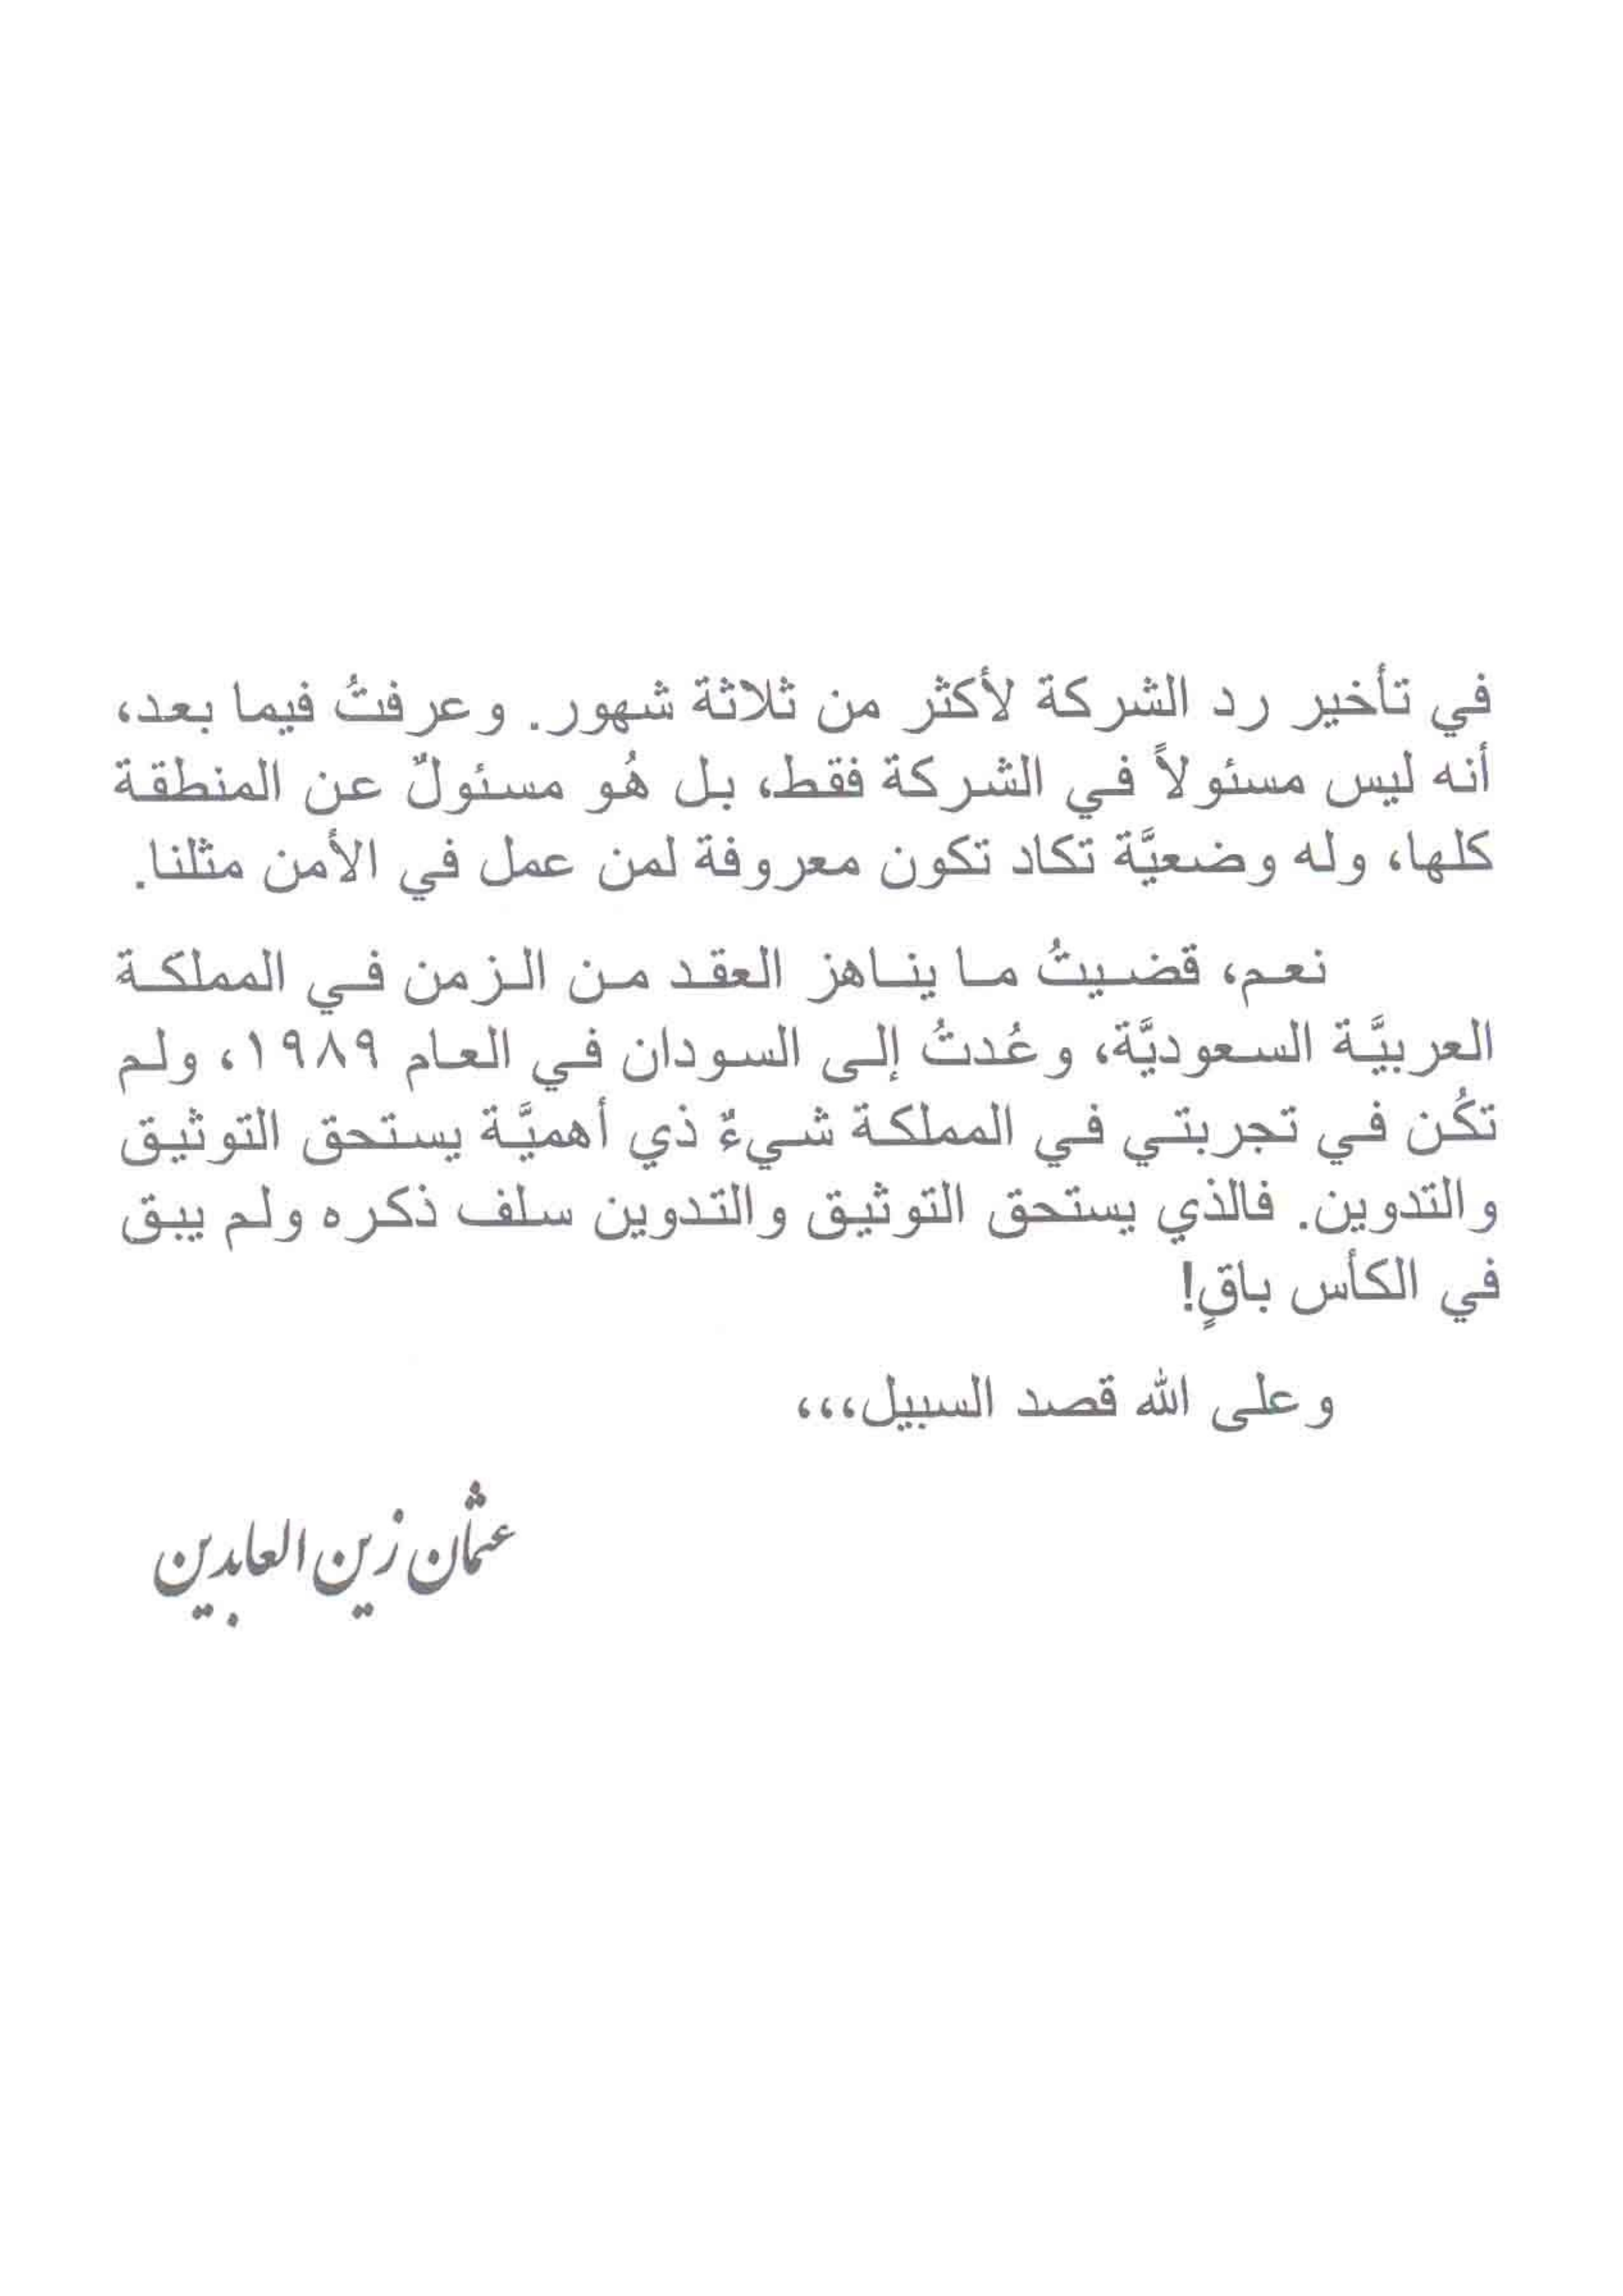 في تأخير رد الشركة لأكثر من ثلاثة شهور. وعرفتُ فيما بعد،
أنه ليس مسئولاً في الشركة فقط، بل هُو مسئولٌ عن المنطقة
كلها، وله وضعيَّة تكاد تكون معروفة لمن عمل في الأمن مثلنا.
نعم، قضيتُ ما يناهز العقد من الزمن في المملكة
العربيَّة السعوديَّة، وعُدتُ إلى السودان في العام ١٩٨٩، ولم
تكُن في تجربتي في المملكة شيءٌ ذي أهميَّة يستحق التوثيق
والتدوين. فالذي يستحق التوثيق والتدوين سلف ذكره ولم يبق
في الكأس باقٍ!
وعلى الله قصد السبيل،،،
عثمان زين العابدين